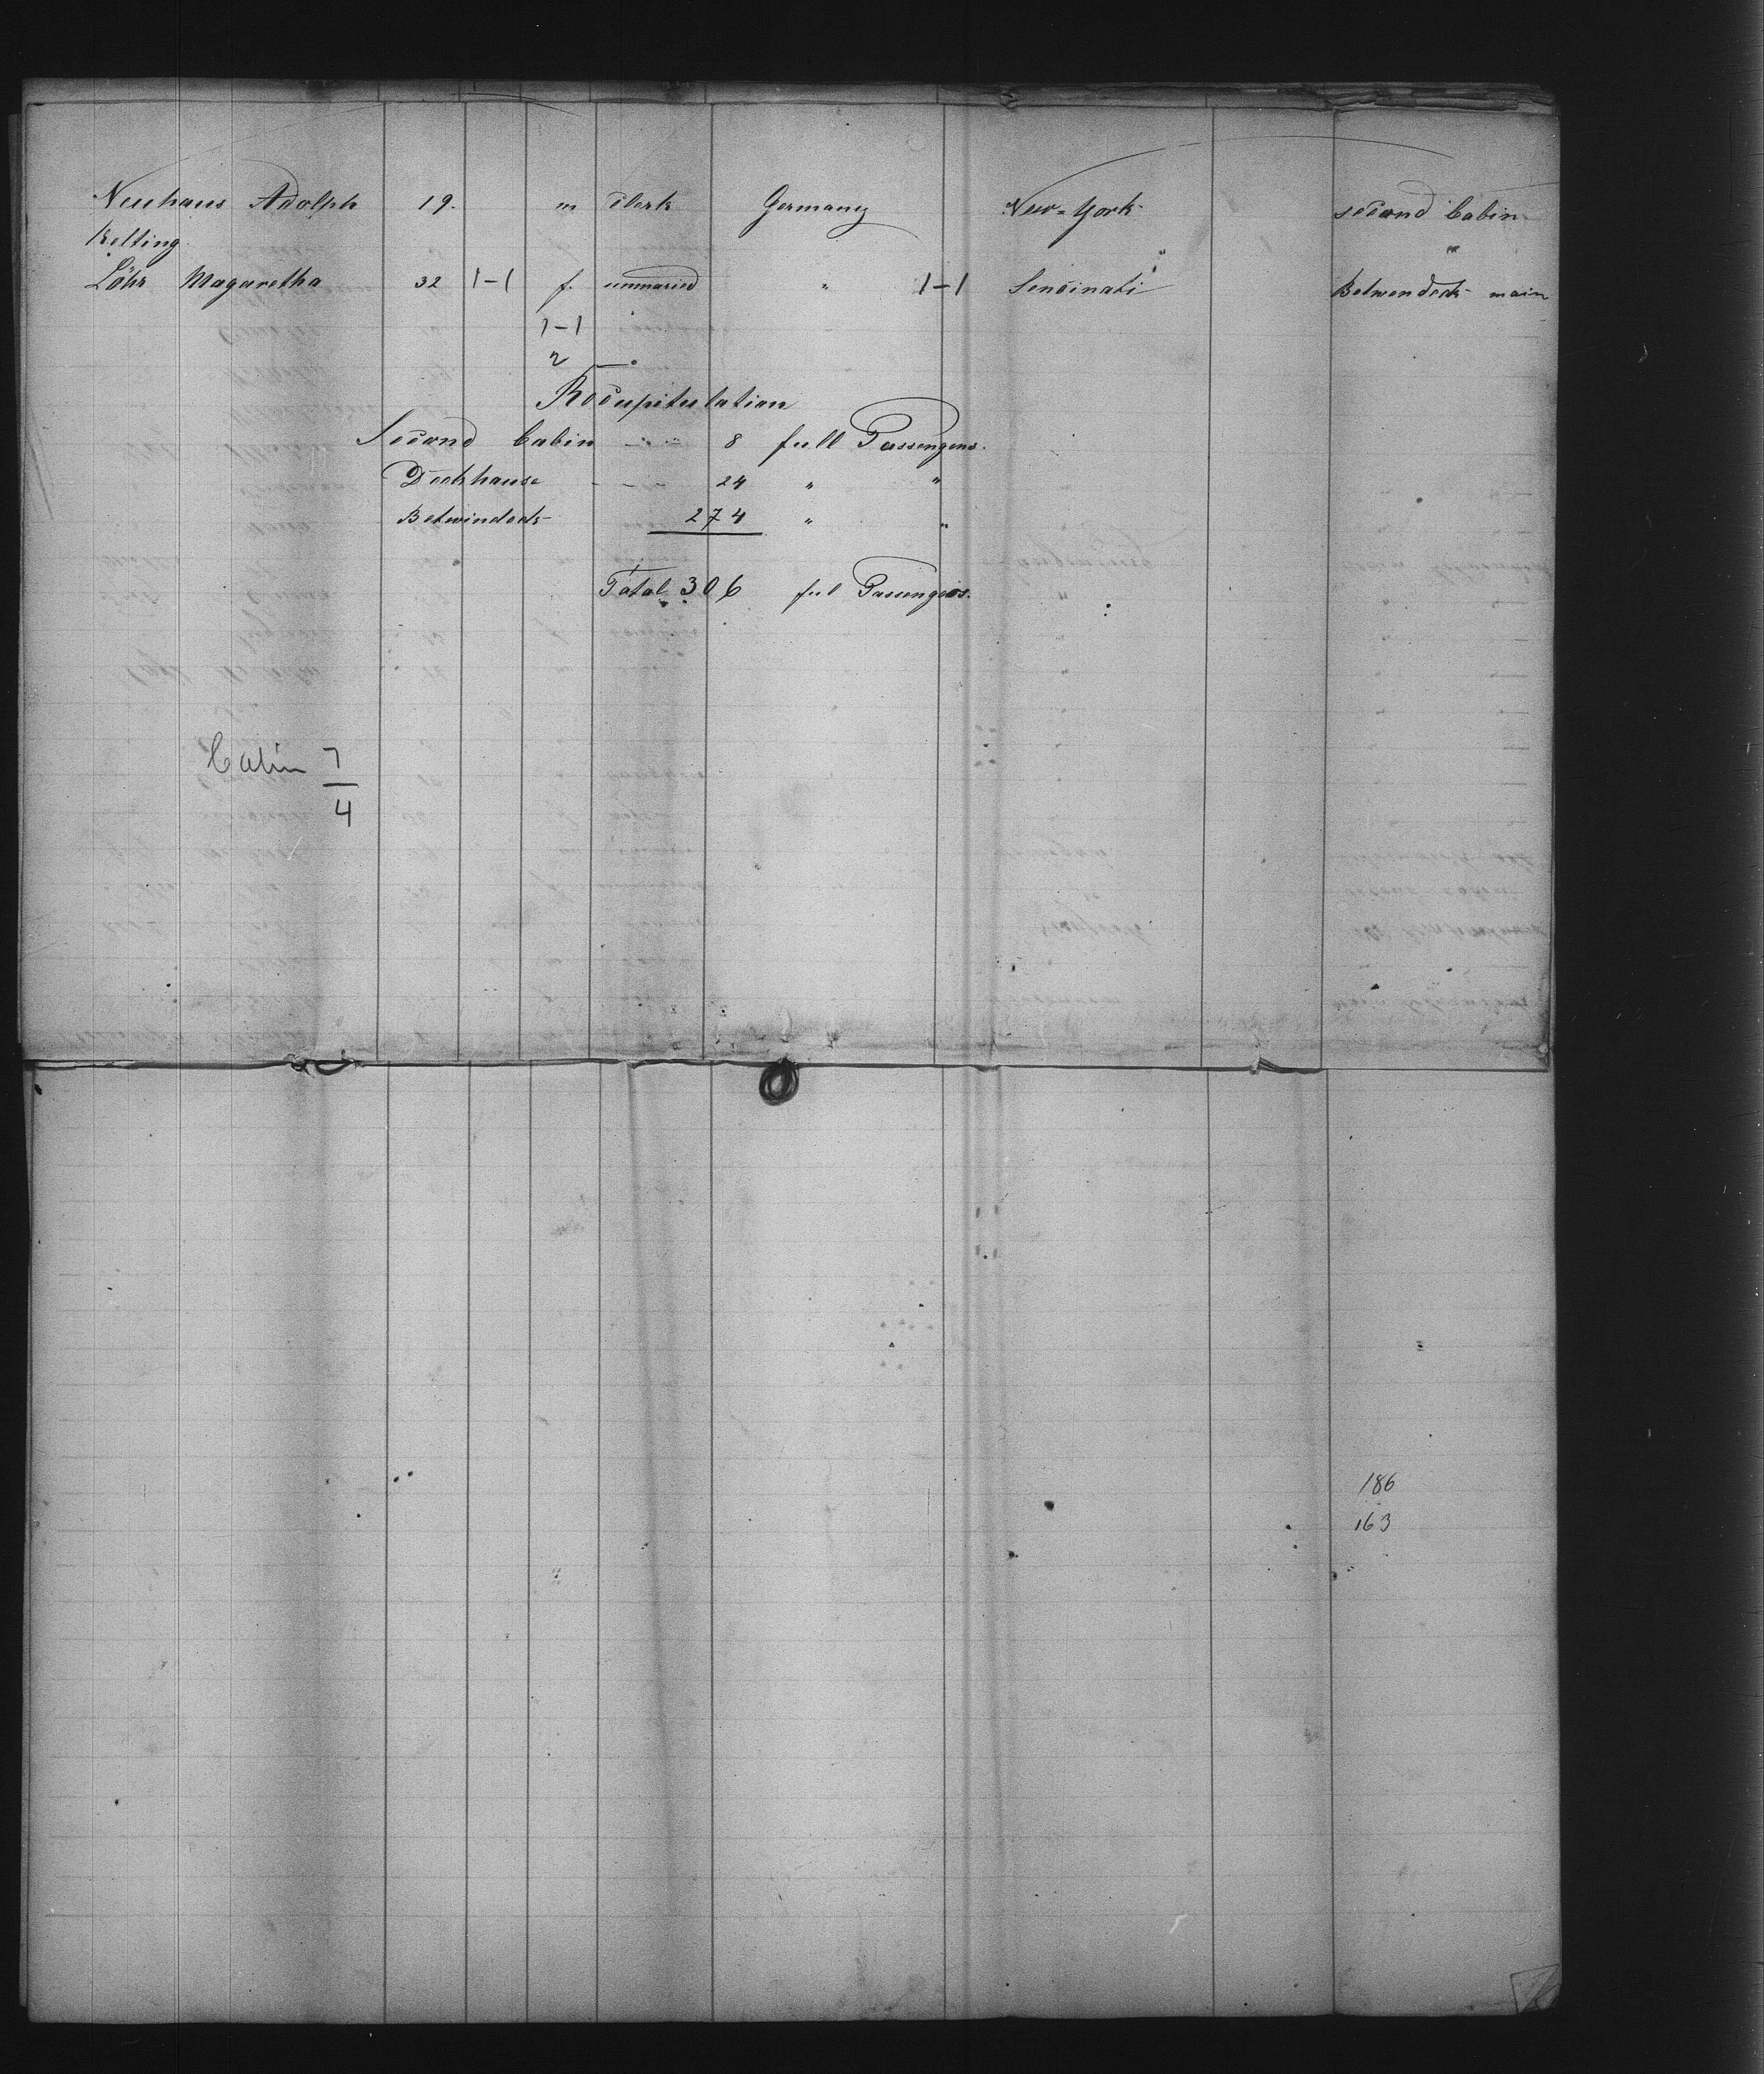 Neuhaus Adolph 19. m Clerk Germany New-York second Cabin
Kelting " "
Löhr Magaretha 32 1-1 f. unmaried " 1-1 Sencinati Betwendeck main
1-1
2
Recupitulation
Second Cabin - - - 8 full Passengers.
Deckhause - - - 24 " "
Betwindeck 274 " "
Total 306 ful Passengers.
Cabin 7
4
186
163